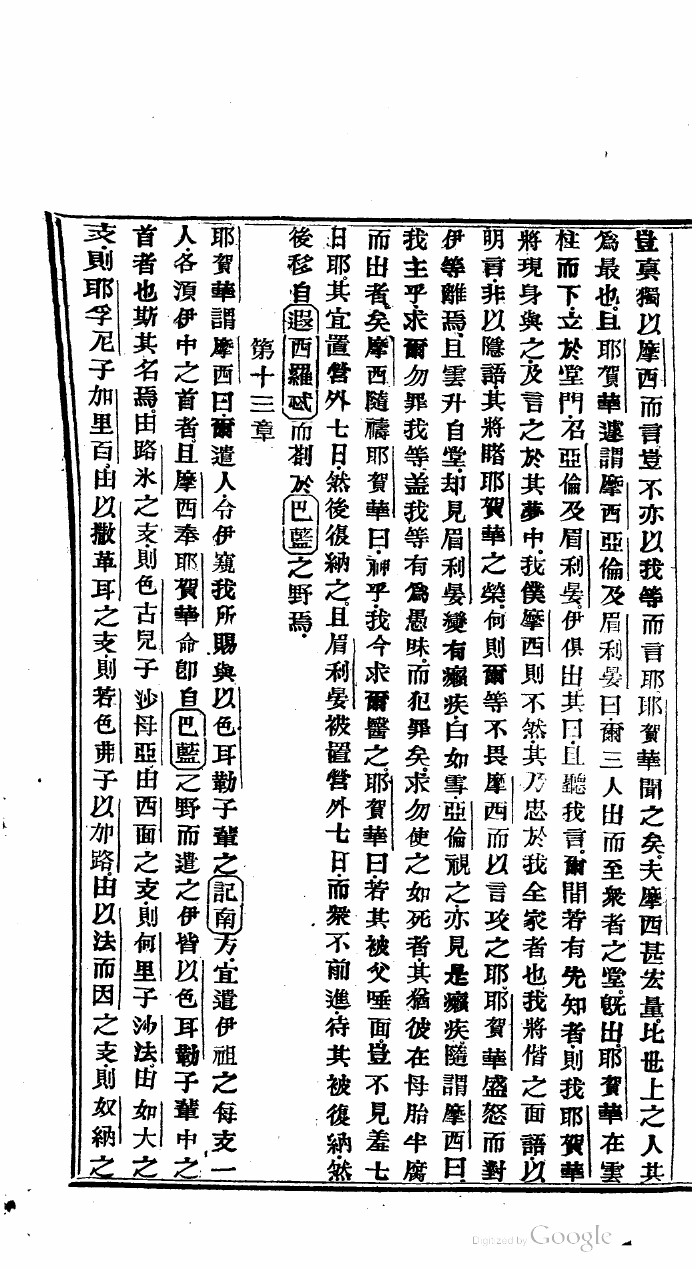 豈真獨以摩西而言豈不亦以我等而言耶耶賀華聞之矣夫摩西甚宏量比世上之人其
為最也且耶賀華遽謂摩西亞倫及眉利晏曰爾三人出而至衆者之堂旣出耶賀華在雲
柱而下立於堂門召亞倫及眉利晏伊俱出其曰且聽我言爾間若有先知者則我耶賀華
將現身與之及言之於其夢中我僕摩西則不然其乃忠於我全家者也我將偕之面語以
明言非以隱語其將睹耶賀華之榮何則爾等不畏摩西而以言攻之耶耶賀華盛怒而對
伊等離焉且雲升自堂却見眉利晏變有癩疾白如雪亞倫視之亦見是癩疾隨謂摩西曰
我主乎求爾勿罪我等蓋我等有為愚昧而犯罪矣求勿使之如死者其猶彼在母胎半腐
而出者矣摩西隨禱耶賀華曰神乎我今求爾醫之耶賀華曰若其被父唾面豈不見羞七
日耶其宜置營外七日然後復納之且眉利晏被置營外七日而衆不前進待其被復納然
後移自遐西羅忒而剳於巴藍之野焉
第十三章
耶賀華謂摩西曰爾遣人令伊窺我所賜與以色耳勒子輩之記南方宜遣伊祖之每支一
人各湏伊中之首者且摩西奉耶賀華命卽自巴藍之野而遣之伊皆以色耳勒子輩中之
首者也斯其名焉由路氷之支則色古兒子沙母亞由西面之支則何里子沙法由如大之
支則耶孚尼子加里百由以撒革耳之支則若色弗子以加路由以法而因之支則奴納之
Digitized by Google